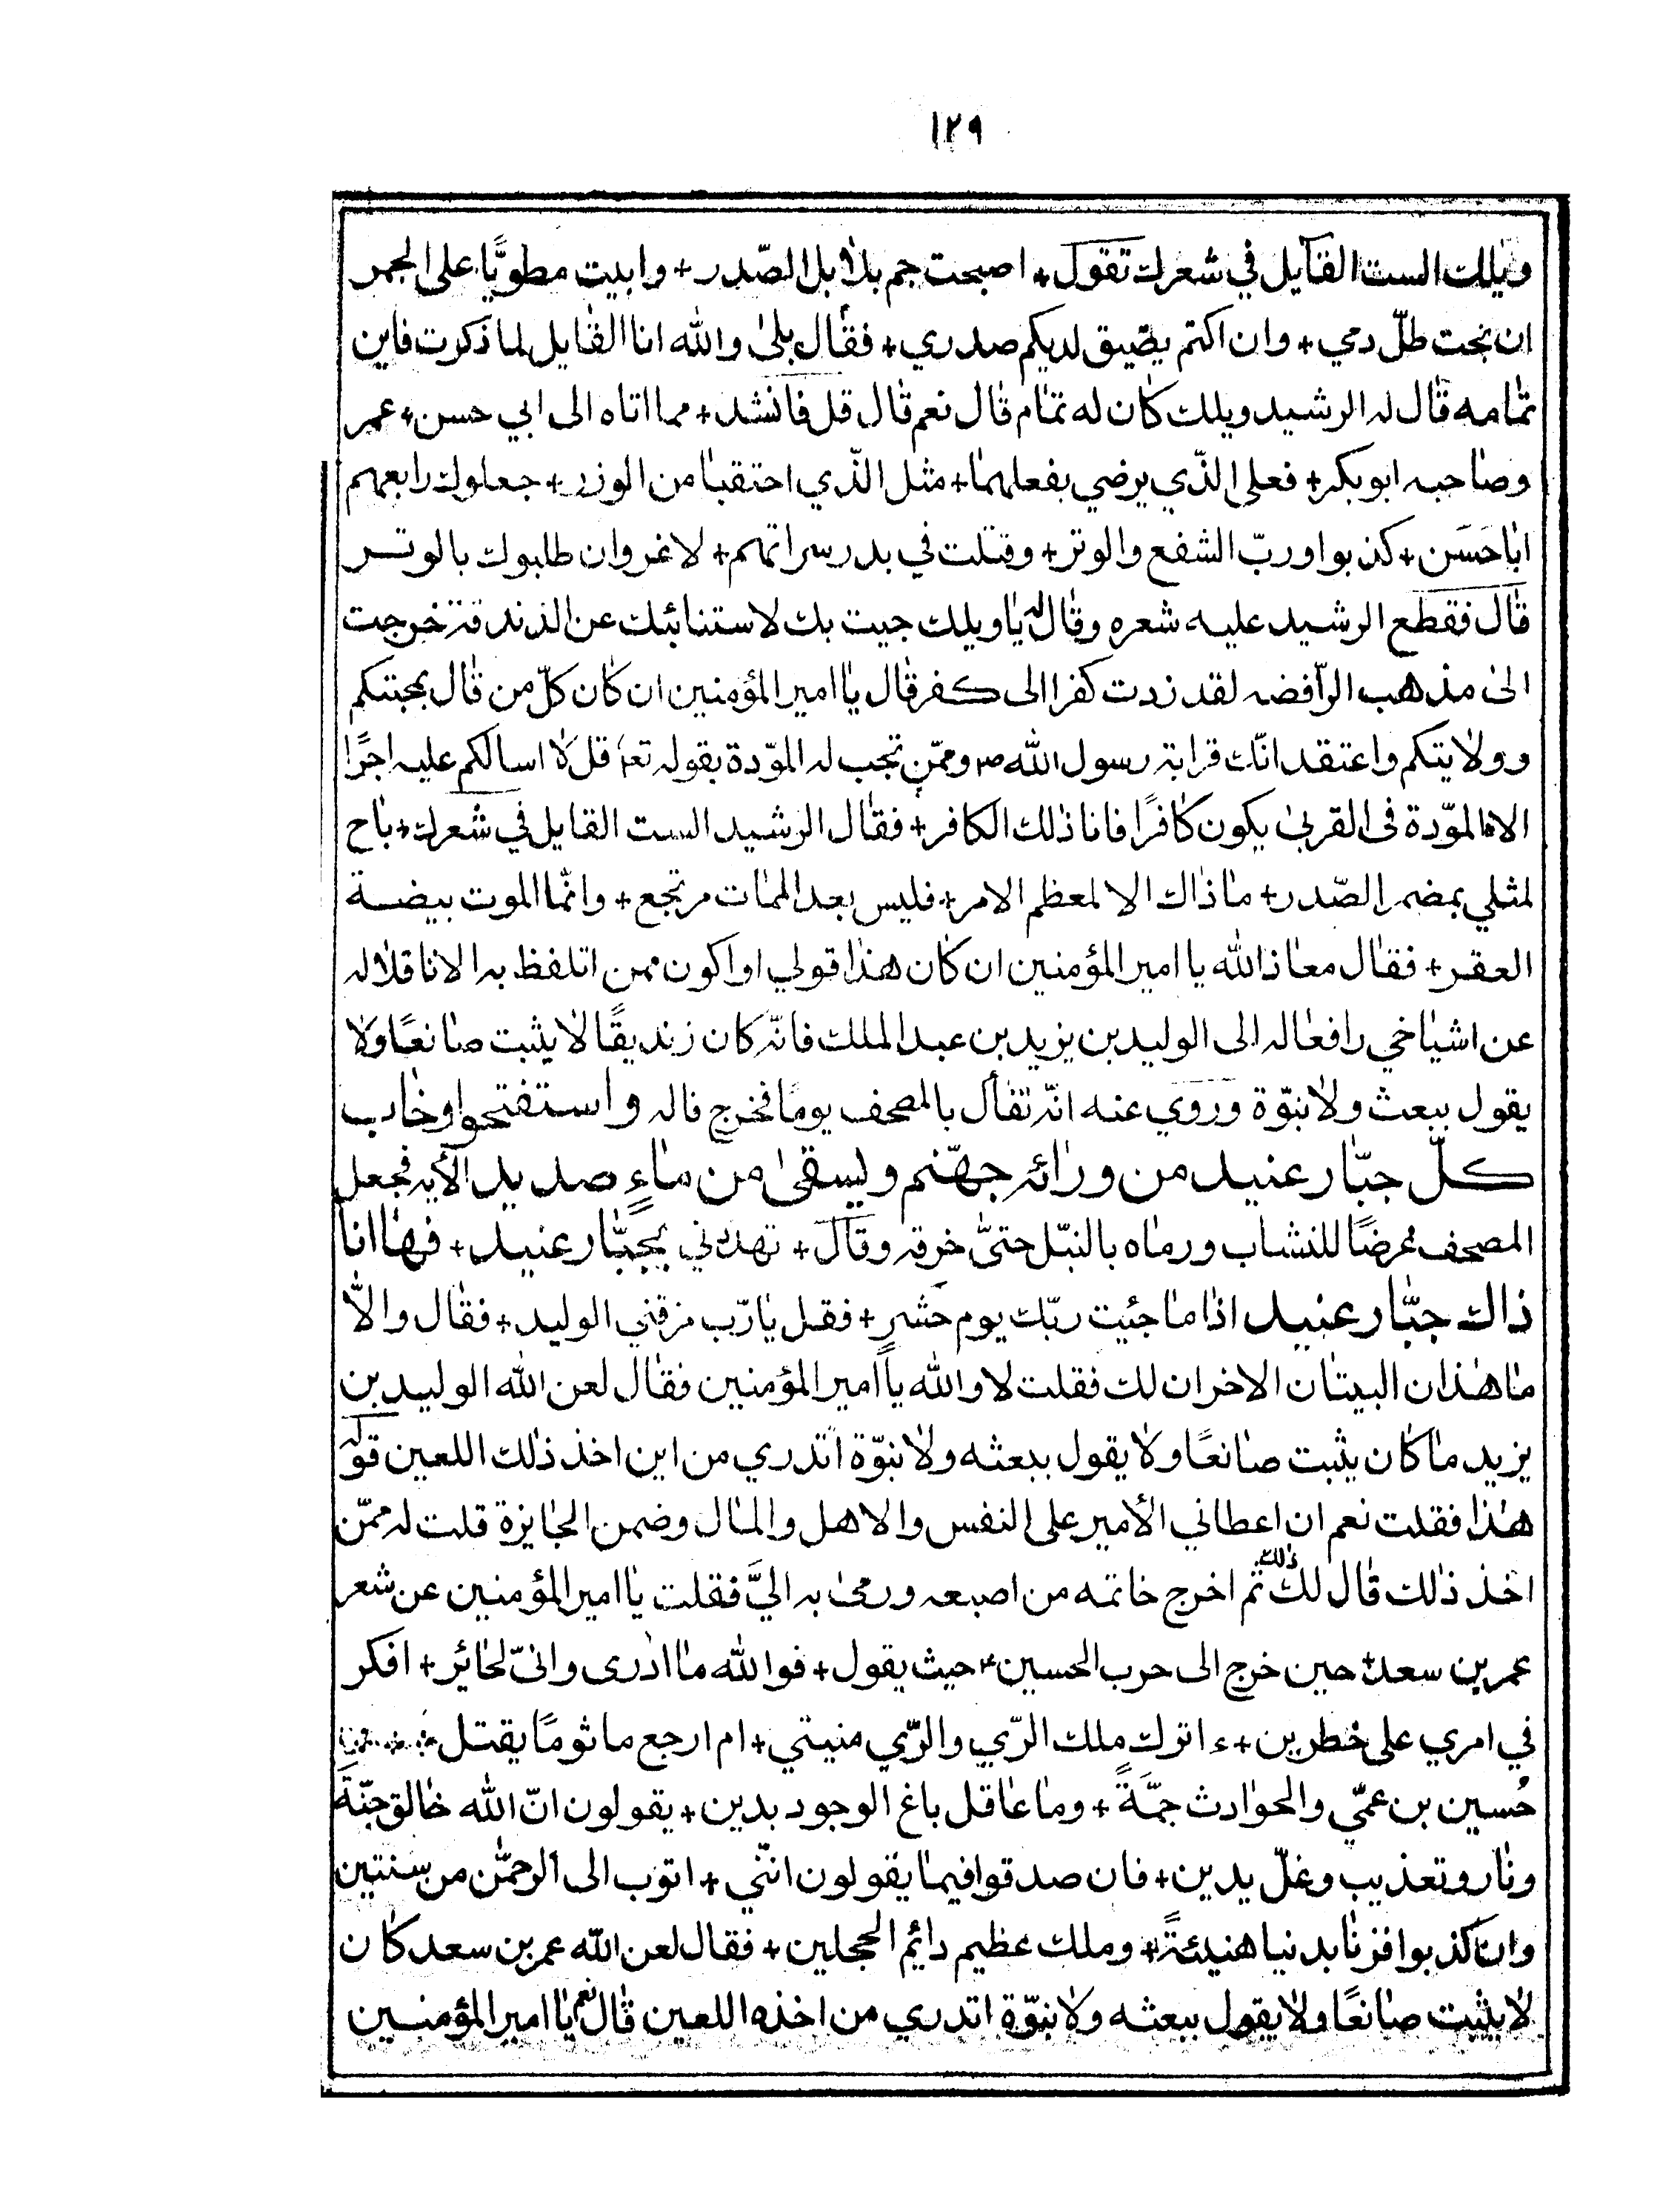 ١٢٩
ويلك الست القايل في شعرك تقول + اصبحت جم بلابل الصّدر + وابيت مطويًّا على الجمر
ان بحت طلّ دمي + وان اكتم يضيق لديكم صدري + فقال بلى والله انا القايل لما ذكرت فاين
تمامه قال له الرشيد ويلك كان له تمام قال نعم قال قل فانشد + مما اتاه الى ابي حسن + عمر
وصاحبه ابو بكر + فعلى الذّي يرضي بفعلهما + مثل الذّي احتقبا من الوزر + جعلوك رابعهم
ابا حَسَن + كذبوا وربّ الشفع والوتر + وقتلت في بدر سراتهم + لا غرو ان طلبوك بالوتر
قال فقطع الرشيد عليه شعره وقال له يا ويلك جيت بك لاستنائبك عن الزندقة خرجت
الى مذهب الرّافضه لقد زدت كفرا الى كفر قال يا امير المؤمنين ان كان كلّ من قال بمحبتكم
وولايتكم واعتقد انّك قرابة رسول الله ص وممّن تجب له المودّة بقوله تع قل لا اسالكم عليه اجرًا
الا المودّة فى القربى يكون كافرًا فانا ذلك الكافر + فقال الرشيد الست القايل في شعرك + باح
لمثلي بمضمر الصّدر + ما ذاك الا لمعظم الامر + فليس بعد الممات مرتجع + وانّما الموت بيضة
العقر + فقال معاذ الله يا امير المؤمنين ان كان هذا قولي او اكون ممن اتلفظ به الا ناقلا له
عن اشياخي رافعا له الى الوليد بن يزيد بن عبد الملك فانّه كان زنديقًا لا يثبت صانعًا ولا
يقول ببعث ولا نبوّة وروي عنه انّه تفأل بالمصحف يومًا فخرج فاله واستفتحوا وخاب
كلّ جبّار عنيد من ورائه جهنّم ويسقى من ماءٍ صديد الأيه فجعل
المصحف غرضًا للنشاب ورماه بالنبّل حتىّ خرقه وقال + تهددني بجبّار عنيد + فها انا
ذاك جبّار عنيد اذا ما جئيت ربّك يوم حَشرٍ + فقل يا رّب مزقني الوليد + فقال والاّ
ما هذان البيتان الاخران لك فقلت لا والله يا امير المؤمنين فقال لعن الله الوليد بن
يزيد ما كان يثبت صانعًا ولا يقول ببعثه ولا نبوّة اتدري من اين اخذ ذلك اللعين قوله
هذا فقلت نعم ان اعطاني الأمير على النفس والاهل والمال وضمن الجايزة قلت له ممّن
اخذ ذلك قال لك ذلك ثم اخرج خاتمه من اصبعه ورمى به اليَّ فقلت يا امير المؤمنين عن شعر
عمر بن سعد + حين خرج الى حرب الحسين ع حيث يقول + فوالله ما ادرى وانىّ لحائر + افكر
في امري على خطرين + ء اترك ملك الرّي والرّي منيتي + ام ارجع ماثومًا يقتل
حُسين بن عمّي والحوادث جمّةً + وما عاقل باغ الوجود بدين + يقولون انّ الله خالق جنّة
ونار وتعذيب وغلّ يدين + فان صدقوا فيما يقولون انّني + اتوب الى الرحمٰن من سنتين
وان كذبوا فزنا بدنيا هنيئةً + وملك عظيم دائم الحجلين + فقال لعن الله عمر بن سعد كان
لا يثبت صانعًا ولا يقول ببعثه ولا نبوّة اتدري من اخذه اللعين قال نعم يا امير المؤمنين